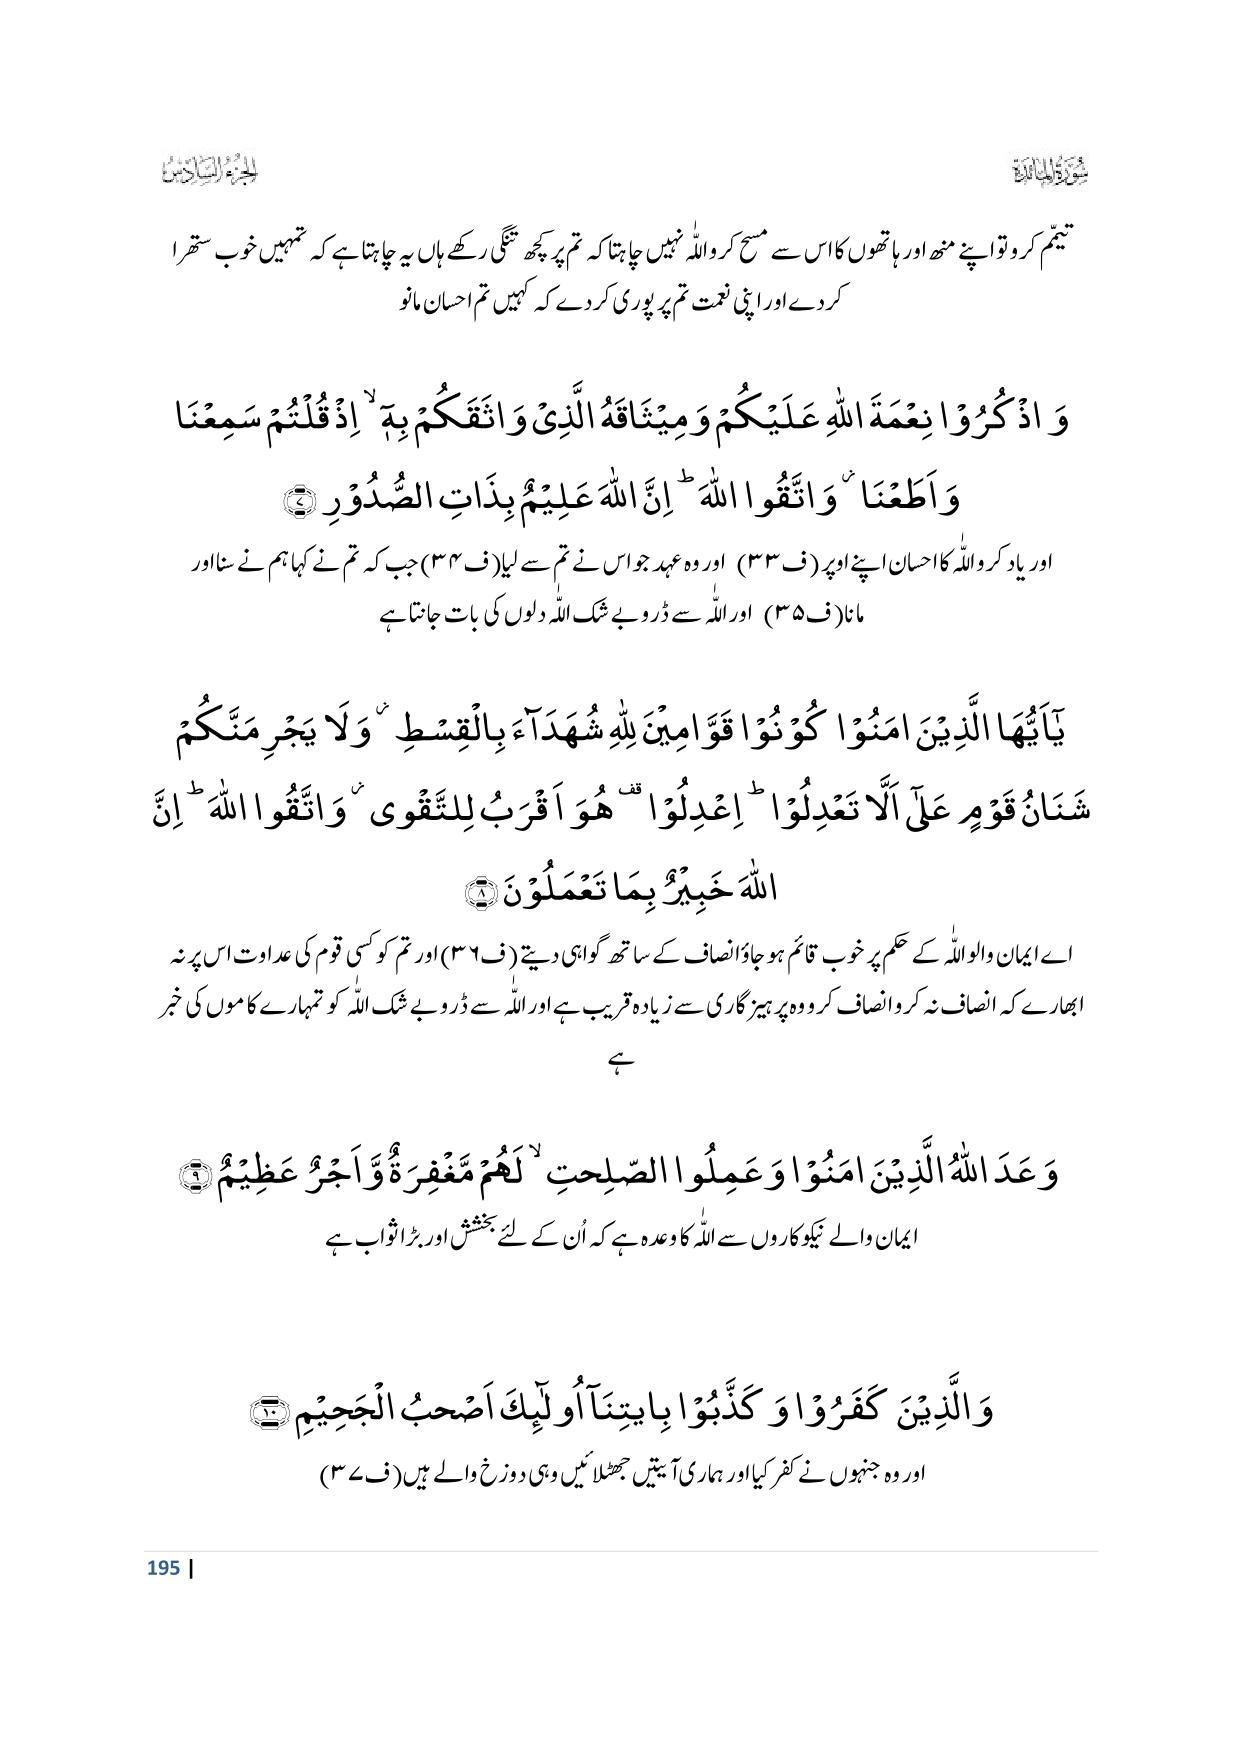 سُوْرَةُ الْمَآئِدَة
الجزء السادس
تیمّم کرو تو اپنے منھ اور ہاتھوں کا اس سے مسح کرو اللّٰہ نہیں چاہتا کہ تم پر کچھ تنگی رکھے ہاں یہ چاہتا ہے کہ تمہیں خوب ستھرا
کر دے اور اپنی نعمت تم پر پوری کر دے کہ کہیں تم احسان مانو
وَ اذْكُرُوْا نِعْمَةَ اللّٰهِ عَلَیْكُمْ وَ مِیْثَاقَهُ الَّذِیْ وَ اثَقَكُمْ بِهٖۤ ۙ اِذْ قُلْتُمْ سَمِعْنَا
وَ اَطَعْنَا ؗ وَ اتَّقُوا اللّٰهَ ؕ اِنَّ اللّٰهَ عَلِیْمٌۢ بِذَاتِ الصُّدُوْرِ ﴿۷﴾
اور یاد کرو اللّٰہ کا احسان اپنے اوپر (ف۳۳) اور وہ عہد جو اس نے تم سے لیا(ف۳۴)جب کہ تم نے کہا ہم نے سنا اور
مانا(ف۳۵) اور اللّٰہ سے ڈرو بے شک اللّٰہ دلوں کی بات جانتا ہے
یٰۤاَیُّهَا الَّذِیْنَ اٰمَنُوْا كُوْنُوْا قَوّٰمِیْنَ لِلّٰهِ شُهَدَآءَ بِالْقِسْطِ ؗ وَ لَا یَجْرِمَنَّكُمْ
شَنَاٰنُ قَوْمٍ عَلٰۤى اَلَّا تَعْدِلُوْا ؕ اِعْدِلُوْا ۫ هُوَ اَقْرَبُ لِلتَّقْوٰى ؗ وَ اتَّقُوا اللّٰهَ ؕ اِنَّ
اللّٰهَ خَبِیْرٌۢ بِمَا تَعْمَلُوْنَ ﴿۸﴾
اے ایمان والو اللّٰہ کے حکم پر خوب قائم ہو جاؤ انصاف کے ساتھ گواہی دیتے (ف۳۶)اور تم کو کسی قوم کی عداوت اس پر نہ
ابھارے کہ انصاف نہ کرو انصاف کرو وہ پرہیز گاری سے زیادہ قریب ہے اور اللّٰہ سے ڈرو بے شک اللّٰہ کو تمہارے کاموں کی خبر
ہے
وَعَدَ اللّٰهُ الَّذِیْنَ اٰمَنُوْا وَ عَمِلُوا الصّٰلِحٰتِ ۙ لَهُمْ مَّغْفِرَةٌ وَّ اَجْرٌ عَظِیْمٌ ﴿۹﴾
ایمان والے نیکو کاروں سے اللّٰہ کا وعدہ ہے کہ اُن کے لئے بخشش اور بڑا ثواب ہے
وَ الَّذِیْنَ كَفَرُوْا وَ كَذَّبُوْا بِاٰیٰتِنَاۤ اُولٰٓىِٕكَ اَصْحٰبُ الْجَحِیْمِ ﴿۱۰﴾
اور وہ جنہوں نے کفر کیا اور ہماری آیتیں جھٹلائیں وہی دوزخ والے ہیں(ف۳۷)
195 |